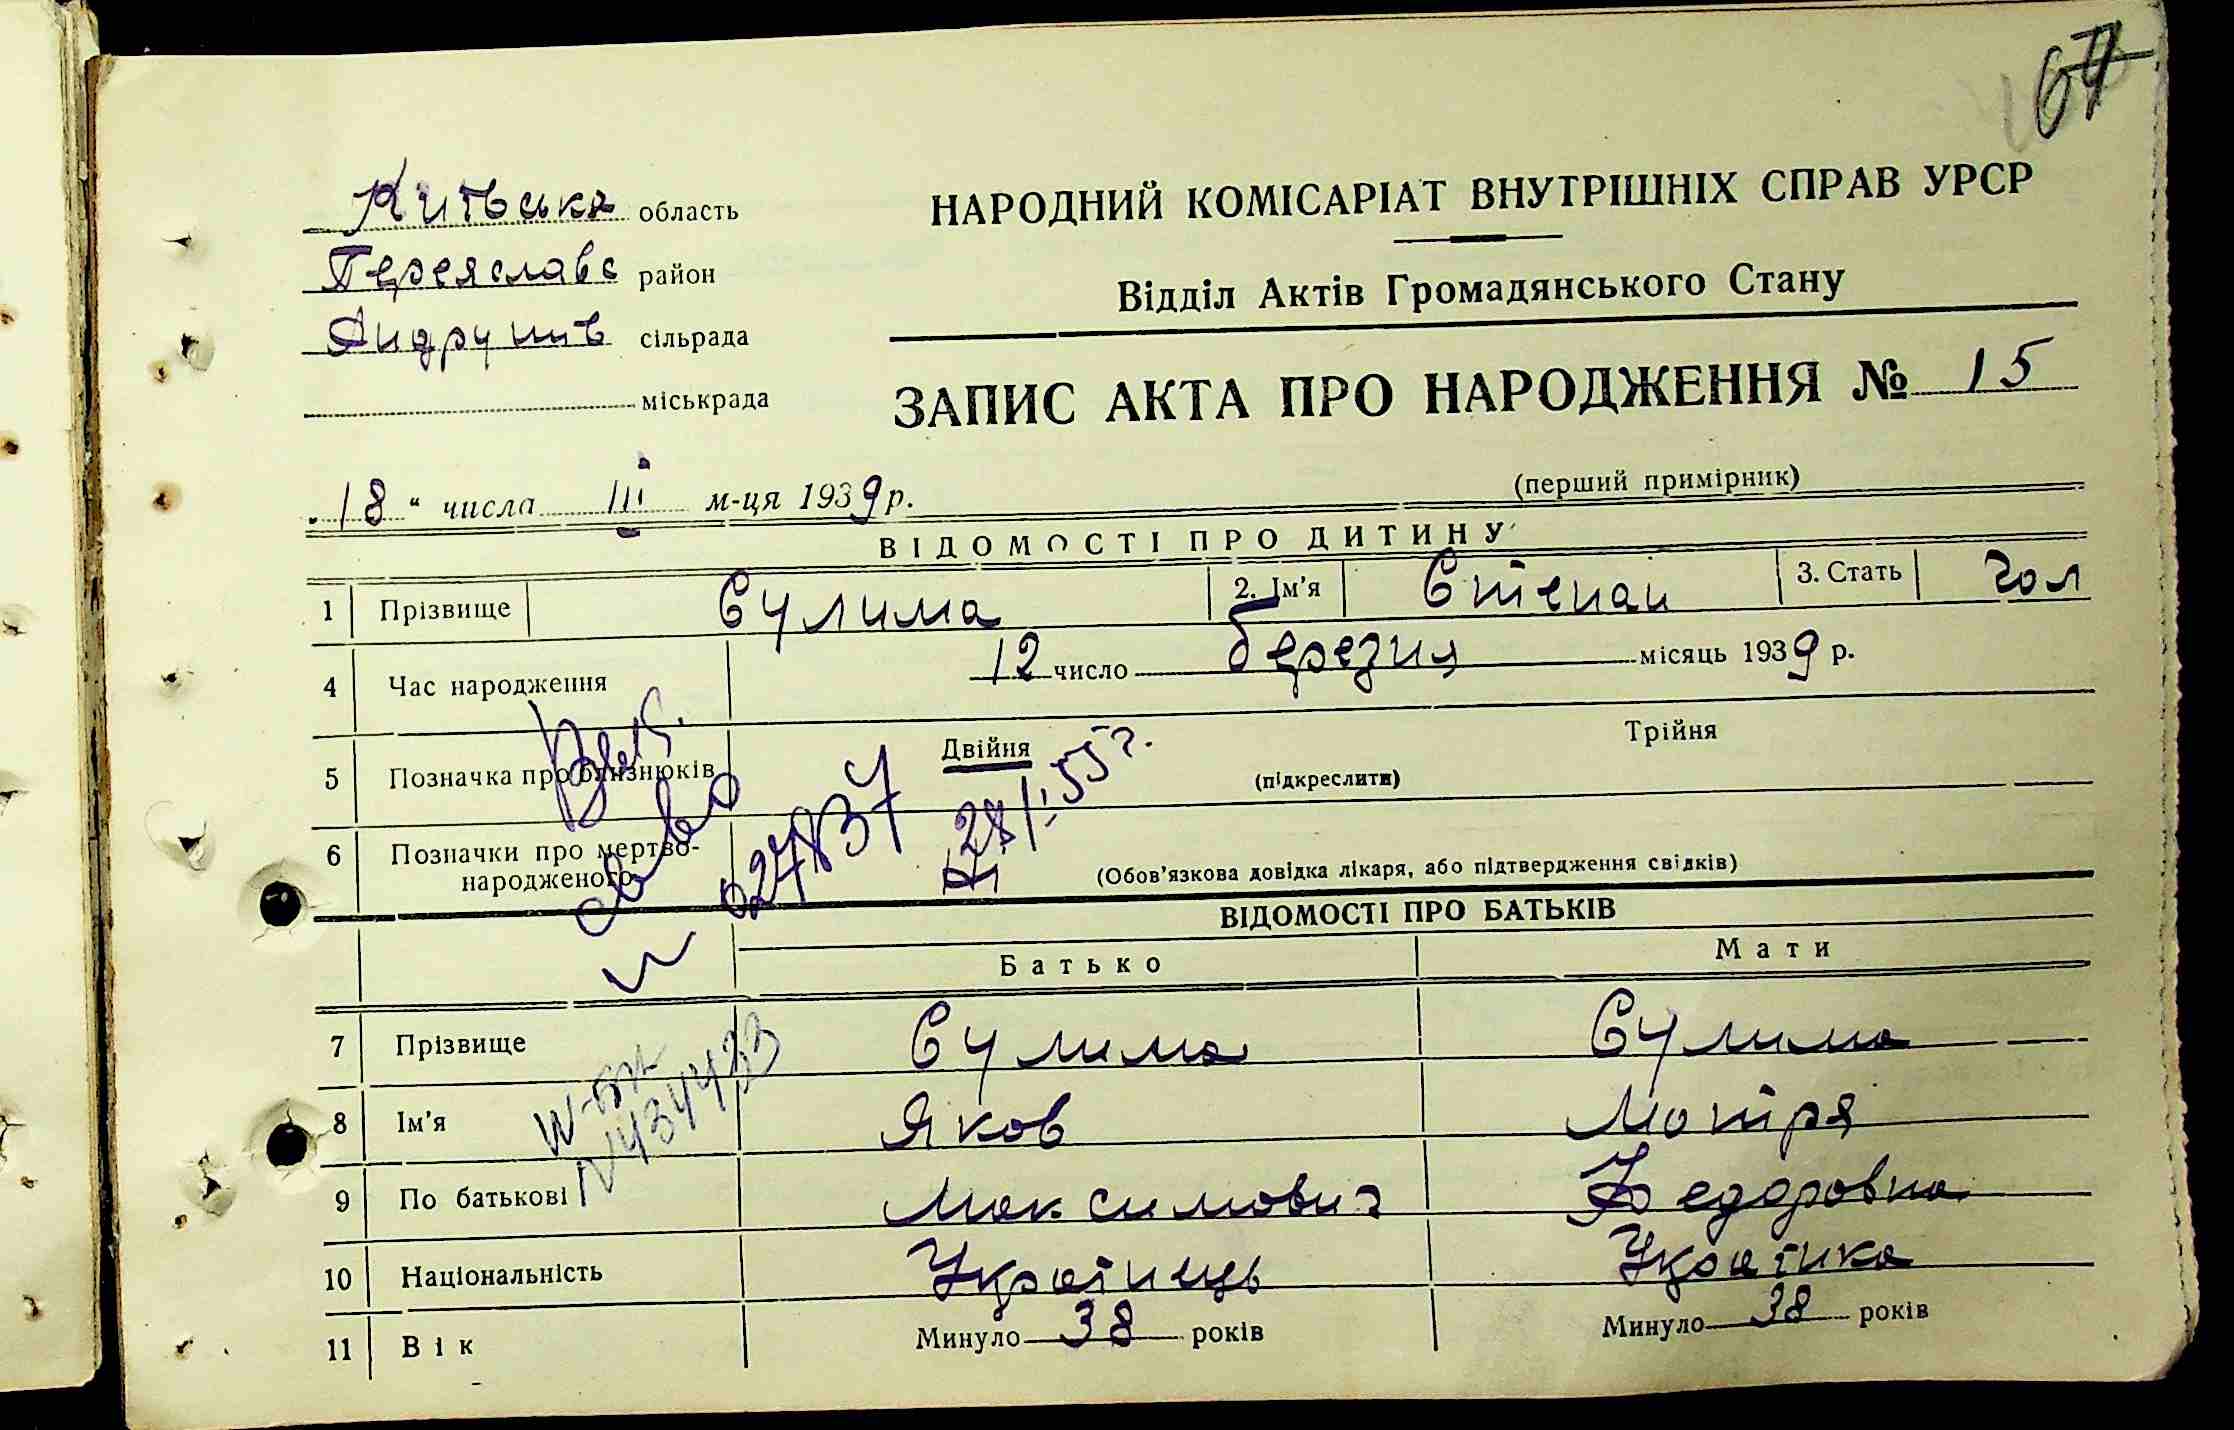 67
Київська область
НАРОДНИЙ КОМІСАРІАТ ВНУТРІШНІХ СПРАВ УРСР
Переяславс район
Відділ Актів Громадянського Стану
Андрушів сільрада
міськрада
ЗАПИС АКТА ПРО НАРОДЖЕННЯ № 15
(перший примірник)
„18“ числа III м-ця 1939 р.
ВІДОМОСТІ ПРО ДИТИНУ
1 Прізвище Сулима 2. Ім'я Степан 3. Стать Чол
4 Час народження 12 число березня місяць 1939 р.
5 Позначка про близнюків Двійня (підкреслити) Трійня
28/I 55 г.
027837
6 Позначки про мертво-
народженого (Обов'язкова довідка лікаря, або підтвердження свідків)
ВІДОМОСТІ ПРО БАТЬКІВ
Батько Мати
7 Прізвище Сулима Сулима
8 Ім'я Яков Мотря
9 По батькові Максимович Федоровна
10 Національність Українець Українка
11 Вік Минуло 38 років Минуло 38 років